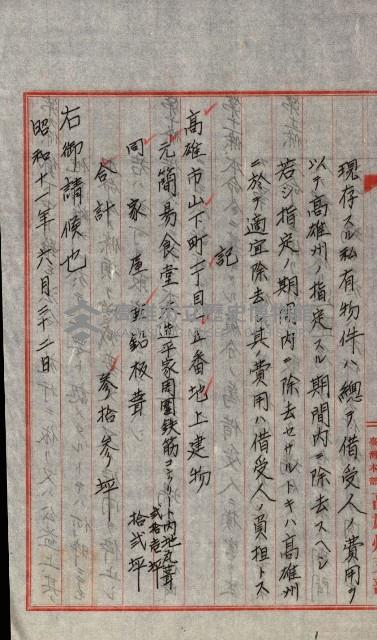 現存スル私有物件ハ總テ借受人ノ費用ヲ
以テ高雄州ノ指定スル期間内ニ除去スヘシ
若シ指定ノ期間内ニ除去セサルトキハ高雄州
ニ於テ適宜除去其ノ費用ハ借受人ノ負担トス
記
高雄市山下町一丁目五番地上建物
元簡易食堂 造平家周囲鉄筋コンクリート内地瓦葺
弐拾壱坪
同 家 庫 亜鉛板葺 拾弐坪
合計 参拾参坪
右御請候也
昭和十一年六月二十二日